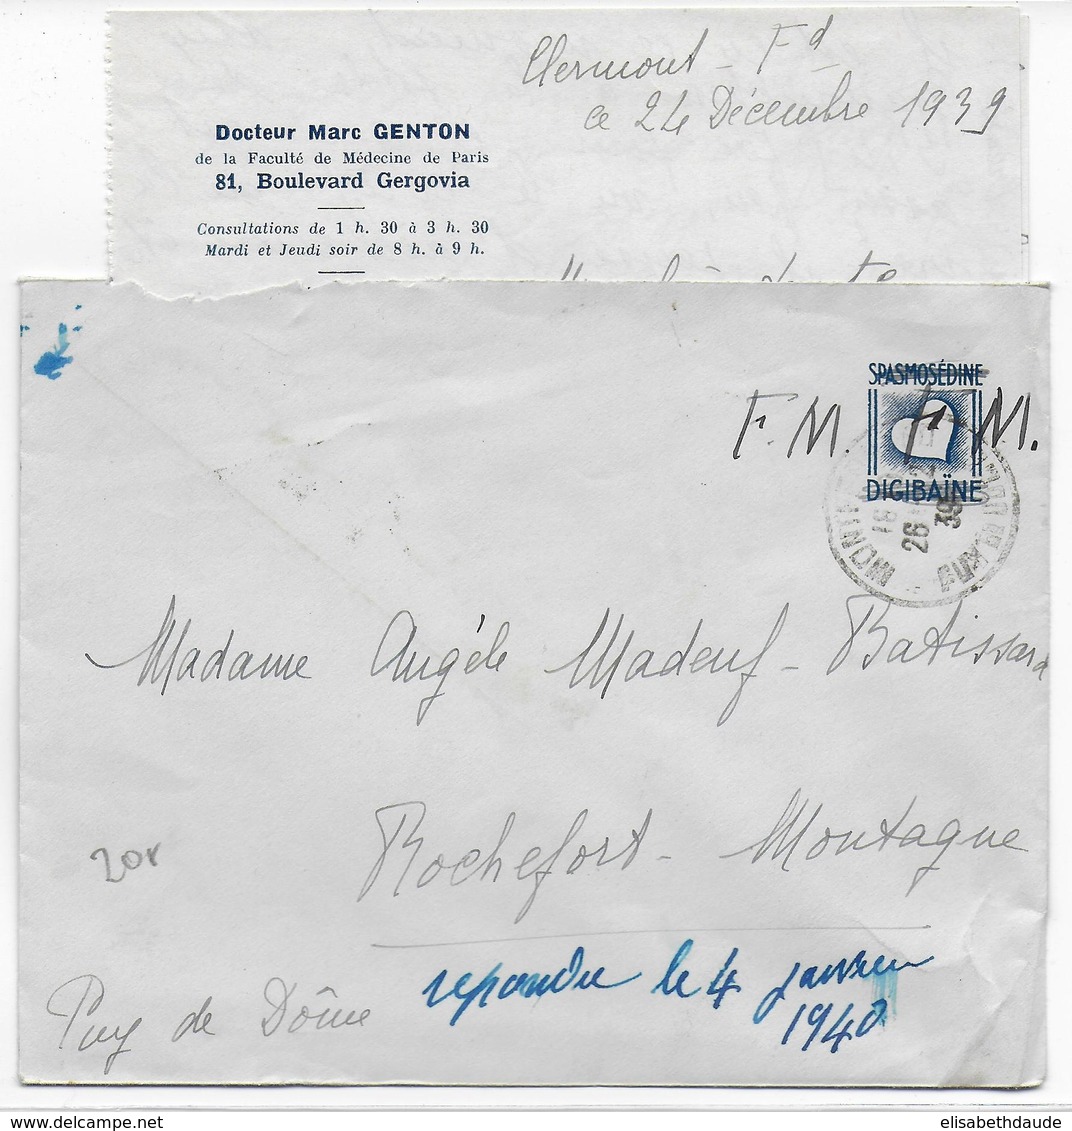 Clermont - Fd
ce 24 Décembre 1939
Docteur Marc GENTON
de la Faculté de Médecine de Paris
81, Boulevard Gergovia
Consultations de 1 h. 30 à 3 h. 30
Mardi et Jeudi soir de 8 h. à 9 h.
SPASMOSÉDINE
F.M. F.M.
DIGIBAÏNE
26
39
PUY DE DOME
Madame Angèle Madeuf - Batissard
Rochefort - Montagne
20r
repondue le 4 janvier
1940
Puy de Dôme
elisabethdaude